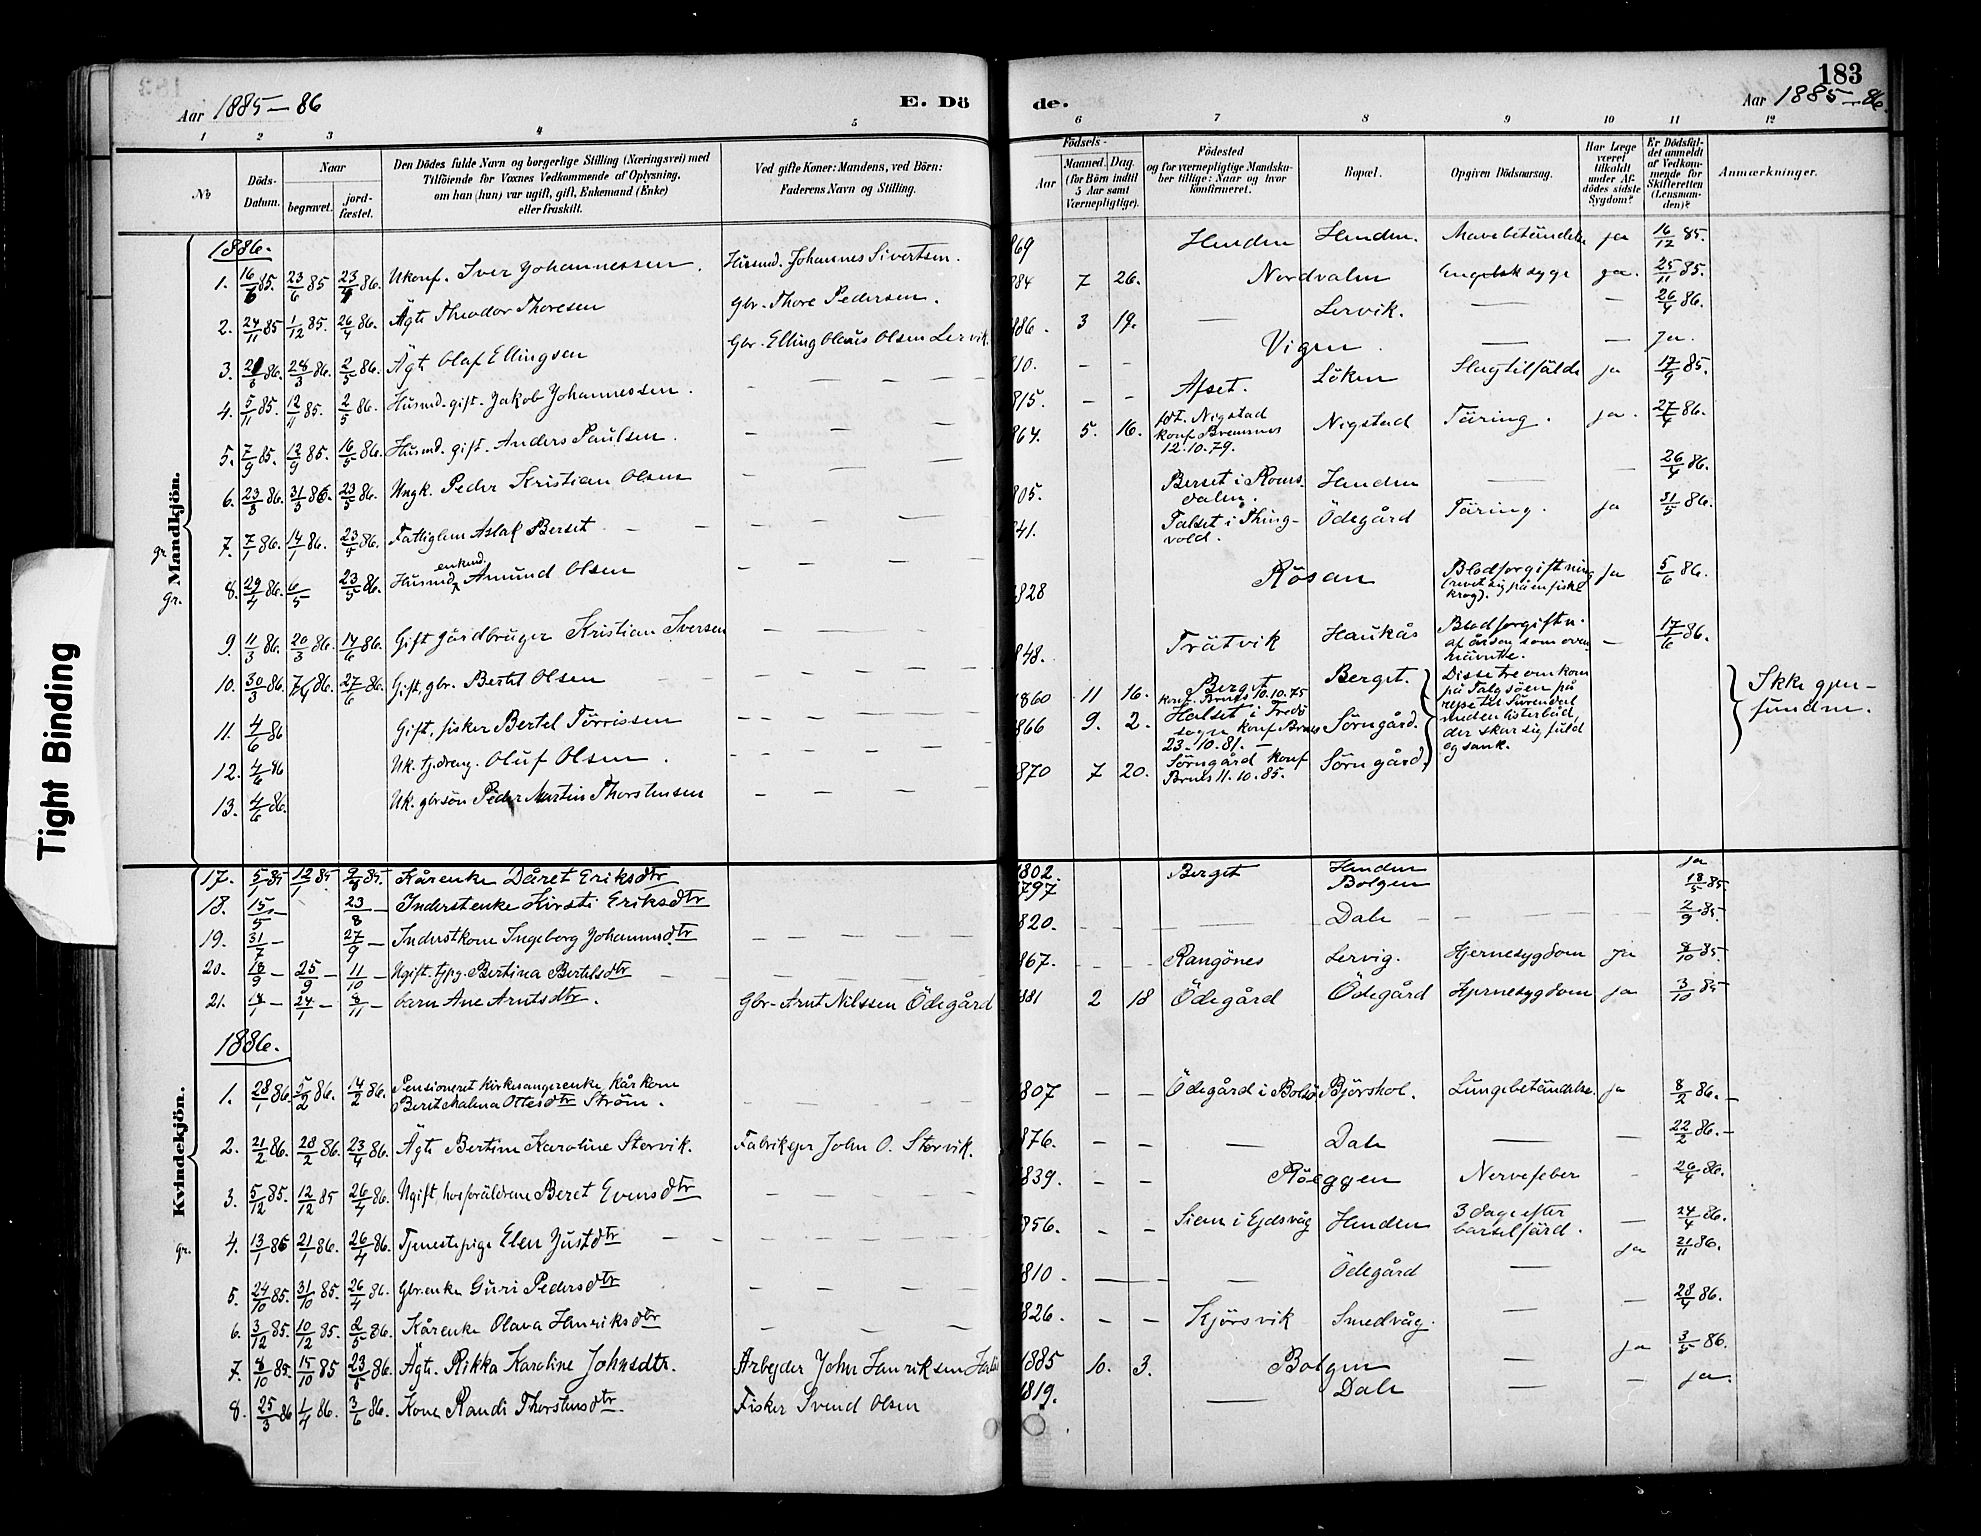 183
Aar 1885-86
E. Dö
de.
Aar 1885-86.
1 2 3 4 5 6 7 8 9 10 11 12
No
Döds-Datum.
Naar
begravet.
jord-fæstet.
Den Dödes fulde Navn og borgerlige Stilling (Næringsvei) med
Tilföiende for Voxnes Vedkommende af Oplysning,
om han (hun) var ugift, gift, Enkemand (Enke)
eller fraskilt.
Ved gifte Koner: Mandens, ved Börn:
Faderens Navn og Stilling.
Födsels-
Aar
Maaned. Dag.
(for Börn indtil
5 Aar samt
Værnepligtige).
Födested
og for værnepligtige Mandska-
ber tillige: Naar og hvor
konfirmeret.
Bopæl.
Opgiven Dödsaarsag.
Har Læge
været
tilkaldt
under Af-
dödes sidste
Sygdom?
Er Dödsfal-
det anmeldt
af Vedkom-
mende for
Skifteretten
(Lensman-
den)?
Anmærkninger.
Tight Binding
Mandkjön.
1886.
1. 16/6 85. 23/6 85 23/4 86. Ukonf. Iver Johannessen. Husmd. Johannes Sivertsen. 869 Henden Henden. Mavebetændelse ja 16/12 85.
2. 24/11 85 1/12 85. 26/4 86. Ägte Theodor Thoresen Gbr. Thore Pedersen. 884 7 26. Nordvalen Engelsk syge ja. 25/11 85.
3. 21/3 86. 28/3 86. 2/5 86. Ägt Olaf Ellingsen Gbr. Elling Olaus Olsen Lervik. 886. 3 19. — Lervik. — — 26/4 86.
4. 5/11 85. 12/11 85. 2/5 86. Husmd. gift. Jakob Johannessen. — — — — 810. - - Vigen. — — Ja.
5. 7/9 85. 12/9 85. 16/5 86. Husmd. gift. Anders Paulsen. — — — 815. - - Afset. Löken Slagtilfälde ja 17/9 85.
6. 23/3 86. 31/3 86. 23/5 86. Ungk. Peder Kristian Olsen — — — 864. 5. 16. Nigstad
konf Bremsnes
12.10.79. Nigstad Täring. ja. 27/4 86.
gr. 7. 7/1 86. 14/1 86. 23/5 86. Fattiglem Aslak Berset — — — 805. Berset i Roms-
dalen. Henden — — 26/4 86.
gr. 8. 29/4 86. 6/5 23/5 86. Husmd enkmd. Amund Olsen — — — 841. Talset i Thing-
vold. Ödegård Täring. ja 31/5 86.
9. 11/3 86. 20/3 86. 14/6 86. Gift gårdbruger Kristian Iversen — — — 1828 Rösan Blodforgiftning
(revet sig på en fiske
krog). Ja 5/6 86.
10. 30/3 86. 7/4 86. 27/6 86. Gift, gbr. Bertel Olsen — — — 848. Trätvik Haukås Blodforgiftn.
af årsag som oven
nävnte. — 17/6 86.
11. 4/6 86 Gift, fisker Bertel Törrissen — — — 1860 11 16. Berget
konf. Brnes 10.10.75 Berget. Disse tre omkom
på Talgsöen på
rejse til Surendal
der skar sig fuld
og sank. Ikke gjen-
fundne.
12. 4/6 86 Uk. tj.dreng. Oluf Olsen. — — — 866 9. 2. Halset i Tredi
sogn konf Brnes
23.10.81.— Sörngård.
13. 4/6 86. Uk. gbrsön Peder Martin Thorstensen — — — 1870 7 20. Sörngård konf
Brnes 11.10.85. Sörngård
Kvindekjön.
17. 5/1 85 12/1 85 2/8 85. Kårenke Dåret Eriksdtr 1802. Berget Henden ja
18. 15/5 — 23/8 — Inderstenke Kirsti Eriksdtr 1797 Bolgen 18/5 85.
19. 31/7 — 27/9 — Inderstkone Ingeborg Johannesdtr — — — 820. — Dale — 2/9 85.
20. 18/9 — 25/9 — 11/10 — Ugift. tjpg. Bertina Bertelsdtr — — — 867. - - Rangönes Lervig. Hjernesygdom ja 8/10 85
21. 14/1 — 24/1 — 8/11 — barn Ane Arntsdtr. Gbr. Arnt Nilssen Ödegård 881 2 18 Ödegård Ödegård Hjernesygdom ja 3/10 85
1886.
1. 28/1 86. 5/2 86. 14/2 86. Pensioneret Kirkesangerenke kår kone
Berit Malena Ottesdtr Ström. — — — 1807 - - Ödegård i Bolsö Björshol. Lungebetändelse. ja 8/2 86.
2. 21/2 86. 28/2 86. 23/4 86. Ägte Bertine Karoline Storvik. Fabrikejer John O. Storvik. 876. - - — Dale — — 22/2 86.
3. 5/12 85. 12/12 85 26/4 86. Ugift, hos forældrene Beret Evensdtr — — — 1839. - - Röeggen Nervefeber - 26/4 86.
gr. 4. 13/1 86 21/1 86. 26/4 86. Tjenestepige Elen Justdtr — — — 856. - - Siem i Ejdsvåg Henden 3 dage efter
barselfärd. — 24/4 86.
5. 24/10 85. 31/10 85. 26/4 86. Gbr.enke Guri Pedersdtr — — — 1810. — — Ödegård — ja 21/11 86.
6. 3/12 85. 10/12 85. 2/5 86. Kårenke Olava Henriksdtr — — — 1826. - - Kjörsvik Smedvåg. — — 28/4 86.
7. 8/10 85. 15/10 85 23/5 86. Ägt. Rikka Karoline Johnsdtr. Arbejder John Henriksen 1885 10. 3. Bolgen — ja 3/5 86.
8. 25/3 86 1/4 86. 3/6 86. Kone Randi Thorstensdtr. Fisker Svend Olsen 1819. — Dale — — ja.